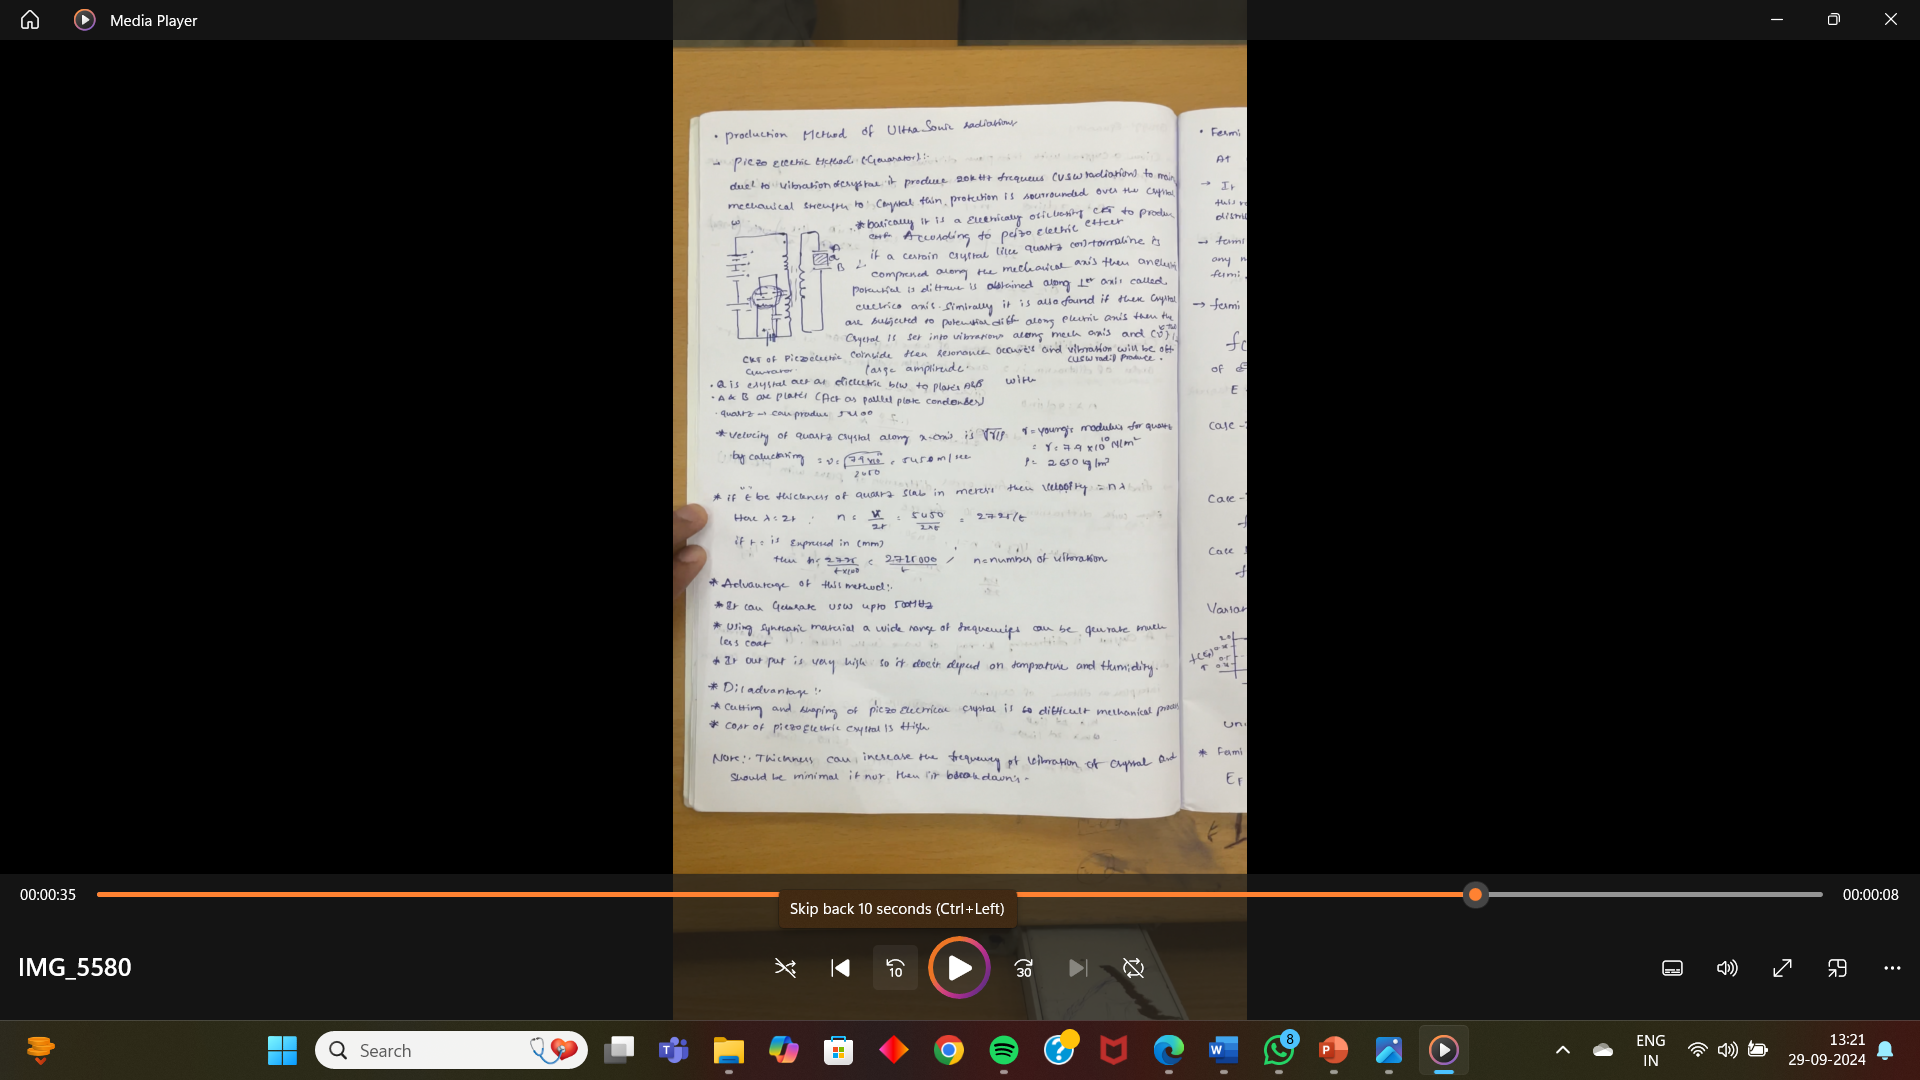 Media Player
• production Method of UltraSonic radiations
→ Piezo Electric Method (Generator):-
due to vibration of crystal it produce 20KHz frequens (USW radiation) to main
mechanical strength to Crystal thin protection is sourrounded over the Crystal
* basically it is a Electrically oscillating CKT to produce
According to peizo electric effect
if a certain crystal like quartz (or) tormaline is
compressed along the mechanical axis then an elect
potential is diffrence is obtained along ⊥er axis called
electrica axis. Simirally it is also found if these Crystal
are subjected to potential diff along electric axis then the
Crystal is set into vibrations along mech axis and
A
B
CKT of Piezoelectric
Generator
coinside then resonance occures and vibration will be off
large amplitude.
(USW radi) produce.
• Q is crystal act as dielectric b/w to plates A&B with
• A & B are plates (Act as parllel plate condenser)
• quartz → can produce
* velocity of quartz crystal along x-axis is √Y/ρ
Y = young's modulus for quartz
by caluclating = v = √79x10 / 2650 = 5450 m/sec
= Y = 7.9 x10¹⁰ N/m²
ρ = 2650 kg/m³
* if t be thickness of quartz slab in meters then velocity = nλ
Here λ = 2t ; n = v/2t = 5450/2xt = 2725/t
if t = is Expressed in (mm)
then n = 2725/ = 2725000/t n = number of vibration
* Advantage of this method:-
* It can Generate USW upto 500Hz
* Using Synthatic material a wide range of frequencies can be genrate much
less cost
* It out put is very high so it does't depend on temprature and Humidity.
* Disadvantage :-
* Cutting and shaping of piezo Electrical crystal is so difficult mechanical
* Cost of piezo Electric crystal is High
Note:- Thickness can increase the frequency of vibration of crystal and
should be minimal if not then it break down's -
• Fermi
At
→ It
this
distri
→ fermi
any
fermi
→ fermi
of
E
Case-
Case-
Case
Varia
* Fermi
EF
00:00:35
00:00:08
Skip back 10 seconds (Ctrl+Left)
IMG_5580
10
30
Search
8
ENG
IN
13:21
29-09-2024